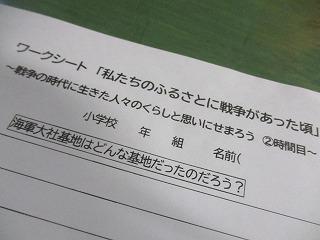 ワークシート 「私たちのふるさとに戦争があった頃」
~戦争の時代に生きた人々のくらしと思いにせまろう ②時間目~
小学校 年 組 名前(
海軍大社基地はどんな基地だったのだろう?